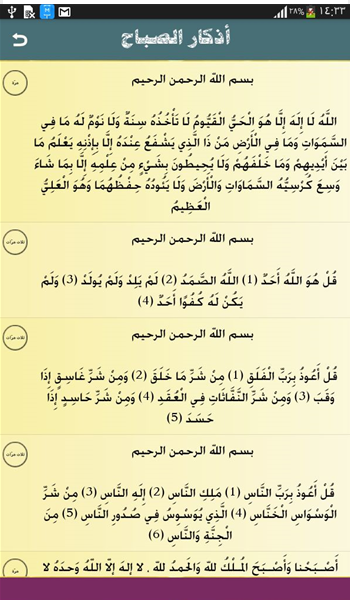 ٢٨% ١٤:٣٣
أذكار الصباح
بسم الله الرحمن الرحيم
مرة
اللَّهُ لَا إِلَهَ إِلَّا هُوَ الْحَيُّ الْقَيُّومُ لَا تَأْخُذُهُ سِنَةٌ وَلَا نَوْمٌ لَهُ مَا فِي
السَّمَوَاتِ وَمَا فِي الْأَرْضِ مَنْ ذَا الَّذِي يَشْفَعُ عِنْدَهُ إِلَّا بِإِذْنِهِ يَعْلَمُ مَا
بَيْنَ أَيْدِيهِمْ وَمَا خَلْفَهُمْ وَلَا يُحِيطُونَ بِشَيْءٍ مِنْ عِلْمِهِ إِلَّا بِمَا شَاءَ
وَسِعَ كُرْسِيُّهُ السَّمَاوَاتِ وَالْأَرْضَ وَلَا يَئُودُهُ حِفْظُهُمَا وَهُوَ الْعَلِيُّ
الْعَظِيمُ
بسم الله الرحمن الرحيم
ثلاث مرات
قُلْ هُوَ اللَّهُ أَحَدٌ (1) اللَّهُ الصَّمَدُ (2) لَمْ يَلِدْ وَلَمْ يُولَدْ (3) وَلَمْ
يَكُنْ لَهُ كُفُوًا أَحَدٌ (4)
بسم الله الرحمن الرحيم
ثلاث مرات
قُلْ أَعُوذُ بِرَبِّ الْفَلَقِ (1) مِنْ شَرِّ مَا خَلَقَ (2) وَمِنْ شَرِّ غَاسِقٍ إِذَا
وَقَبَ (3) وَمِنْ شَرِّ النَّفَّاثَاتِ فِي الْعُقَدِ (4) وَمِنْ شَرِّ حَاسِدٍ إِذَا
حَسَدَ (5)
بسم الله الرحمن الرحيم
ثلاث مرات
قُلْ أَعُوذُ بِرَبِّ النَّاسِ (1) مَلِكِ النَّاسِ (2) إِلَهِ النَّاسِ (3) مِنْ شَرِّ
الْوَسْوَاسِ الْخَنَّاسِ (4) الَّذِي يُوَسْوِسُ فِي صُدُورِ النَّاسِ (5) مِنَ
الْجِنَّةِ وَالنَّاسِ (6)
مرة
أَصْبَحْنا وَأَصْبَحَ المُلْكُ لله وَالحَمدُ لله ، لا إلهَ إلاّ اللّهُ وَحدَهُ لا